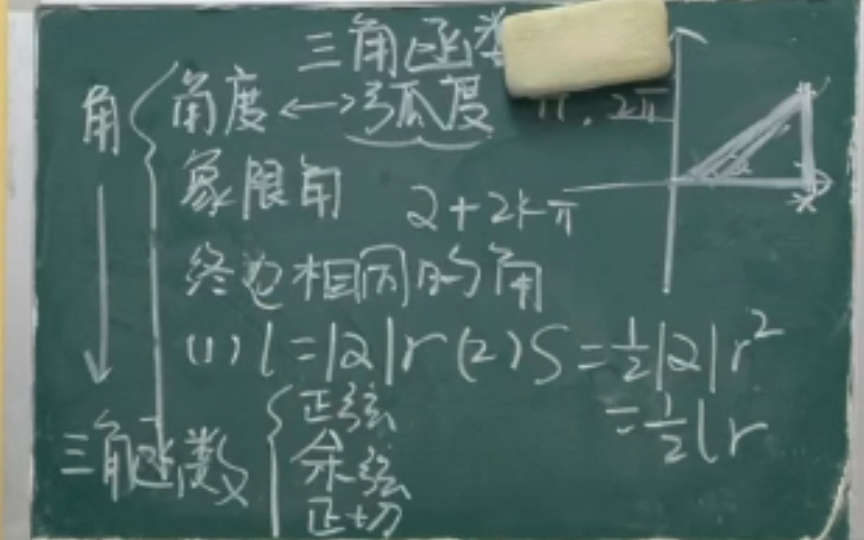 三角函数
角 角度 ↔ 弧度 π, 2π
象限角 α+2kπ
终边相同的角
(1) l=|α|r (2) S=½|α|r²
=½lr
三角函数 正弦
余弦
正切